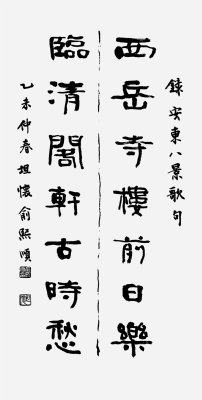 錄安東八景歌句
西岳寺樓前日樂
臨清閣軒古時愁
乙未仲春坦懷俞熙順